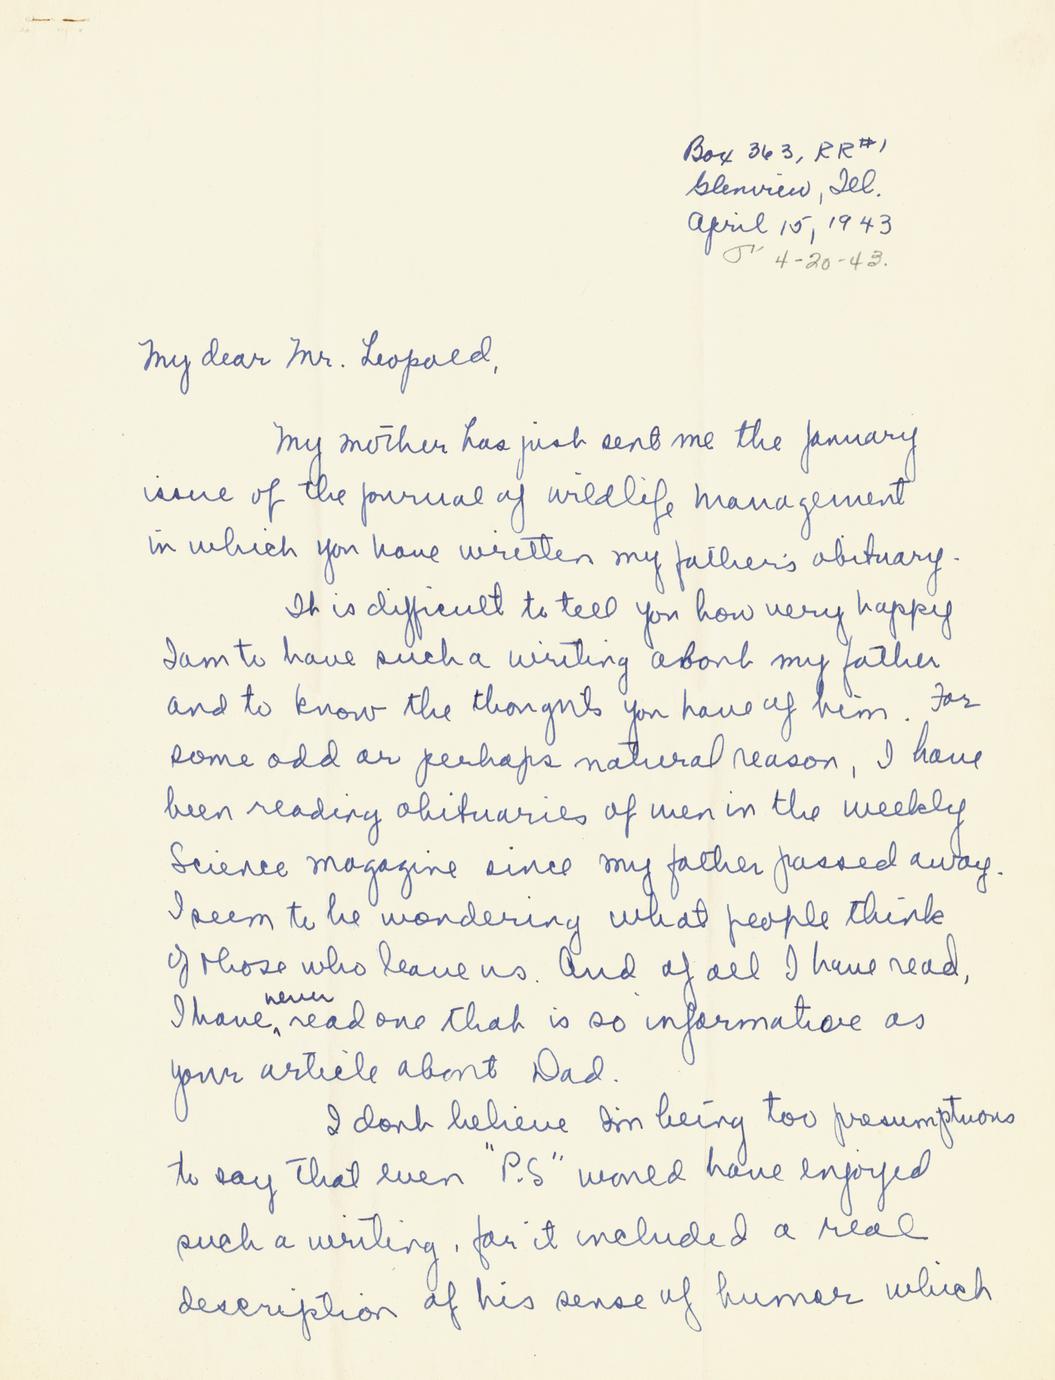 Box 363, RR#1
Glenview, Ill.
April 15, 1943
4-20-43.
My dear Mr. Leopold,
My mother has just sent me the January
issue of the journal of wildlife management
in which you have written my father's obituary.
It is difficult to tell you how very happy
I am to have such a writing about my father
and to know the thoughts you have of him. For
some odd or perhaps natural reason, I have
been reading obituaries of men in the weekly
Science magazine since my father passed away.
I seem to be wondering what people think
of those who leave us. And of all I have read,
I have never read one that is so informative as
your article about Dad.
I dont believe Im being too presumptuous
to say that even "P.S" would have enjoyed
such a writing, for it included a real
description of his sense of humor which